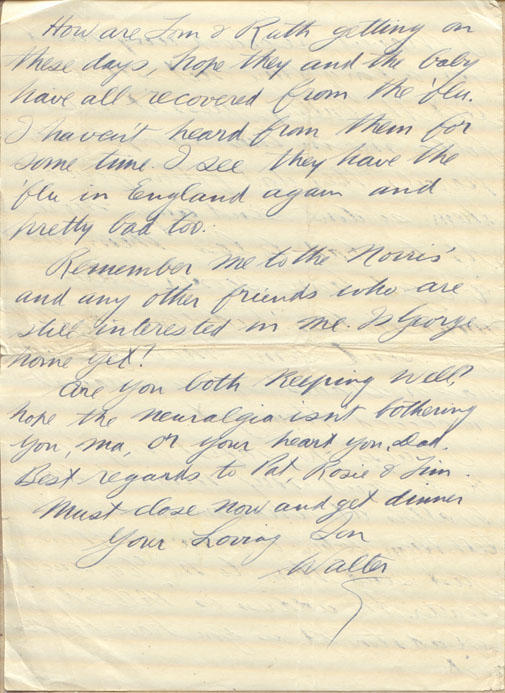 How are Tom & Ruth getting on
these days, hope they and the baby
have all recovered from the 'flu.
I haven't heard from them for
some time. I see they have the
'flu in England again and
pretty bad too.
Remember me to the Norris'
and any other friends who are
still interested in me. Is George
home yet?
Are you both keeping well?
hope the neuralgia isn't bothering
you, Ma, or your heart you, Dad.
Best regards to Pat, Rosie & Jim.
Must close now and get dinner
Your Loving Son
Walter